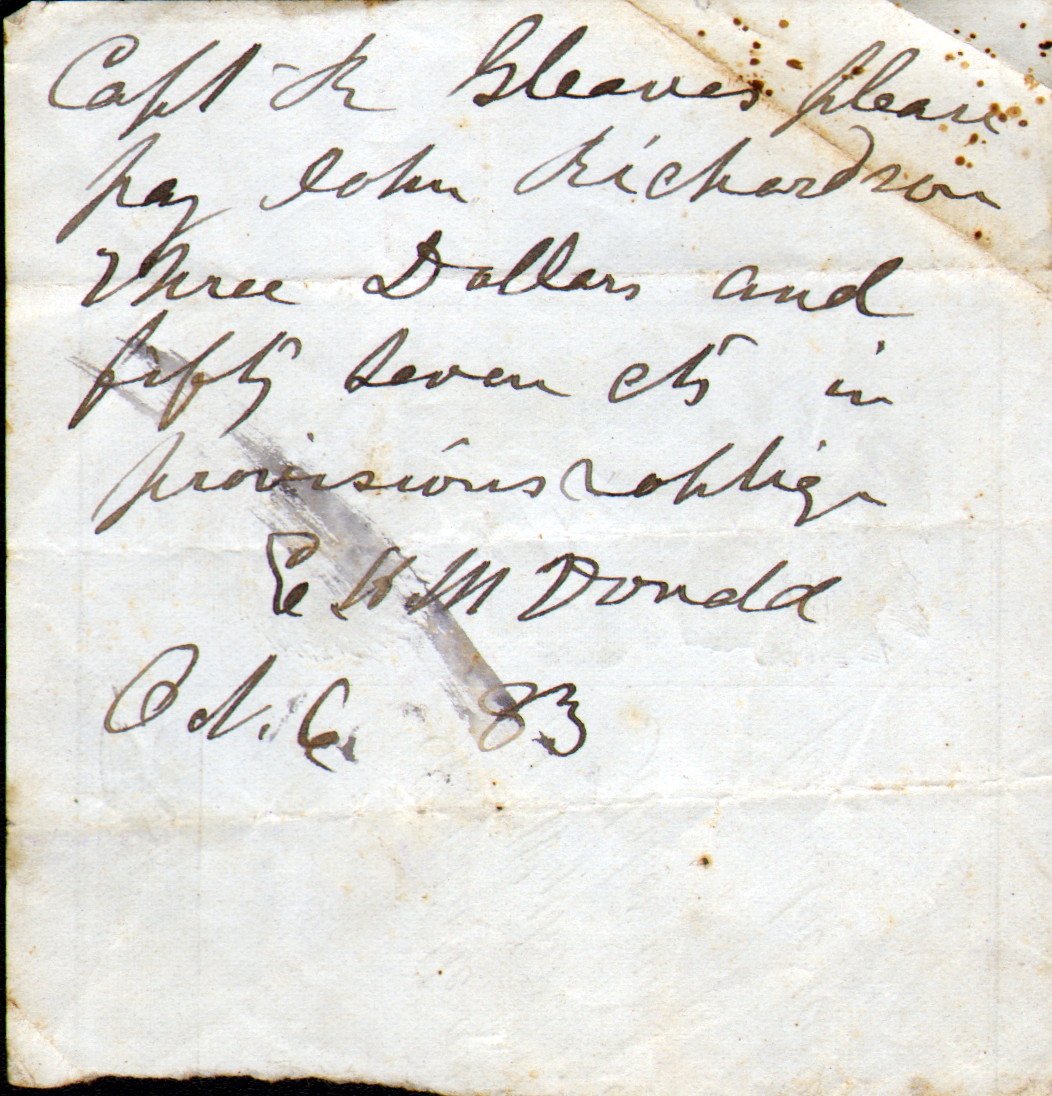 Capt R Gleaves please
pay John Richardson
Three Dollars and
fifty seven cts in
provisions & oblige
E H McDonald
Oct. 6 83